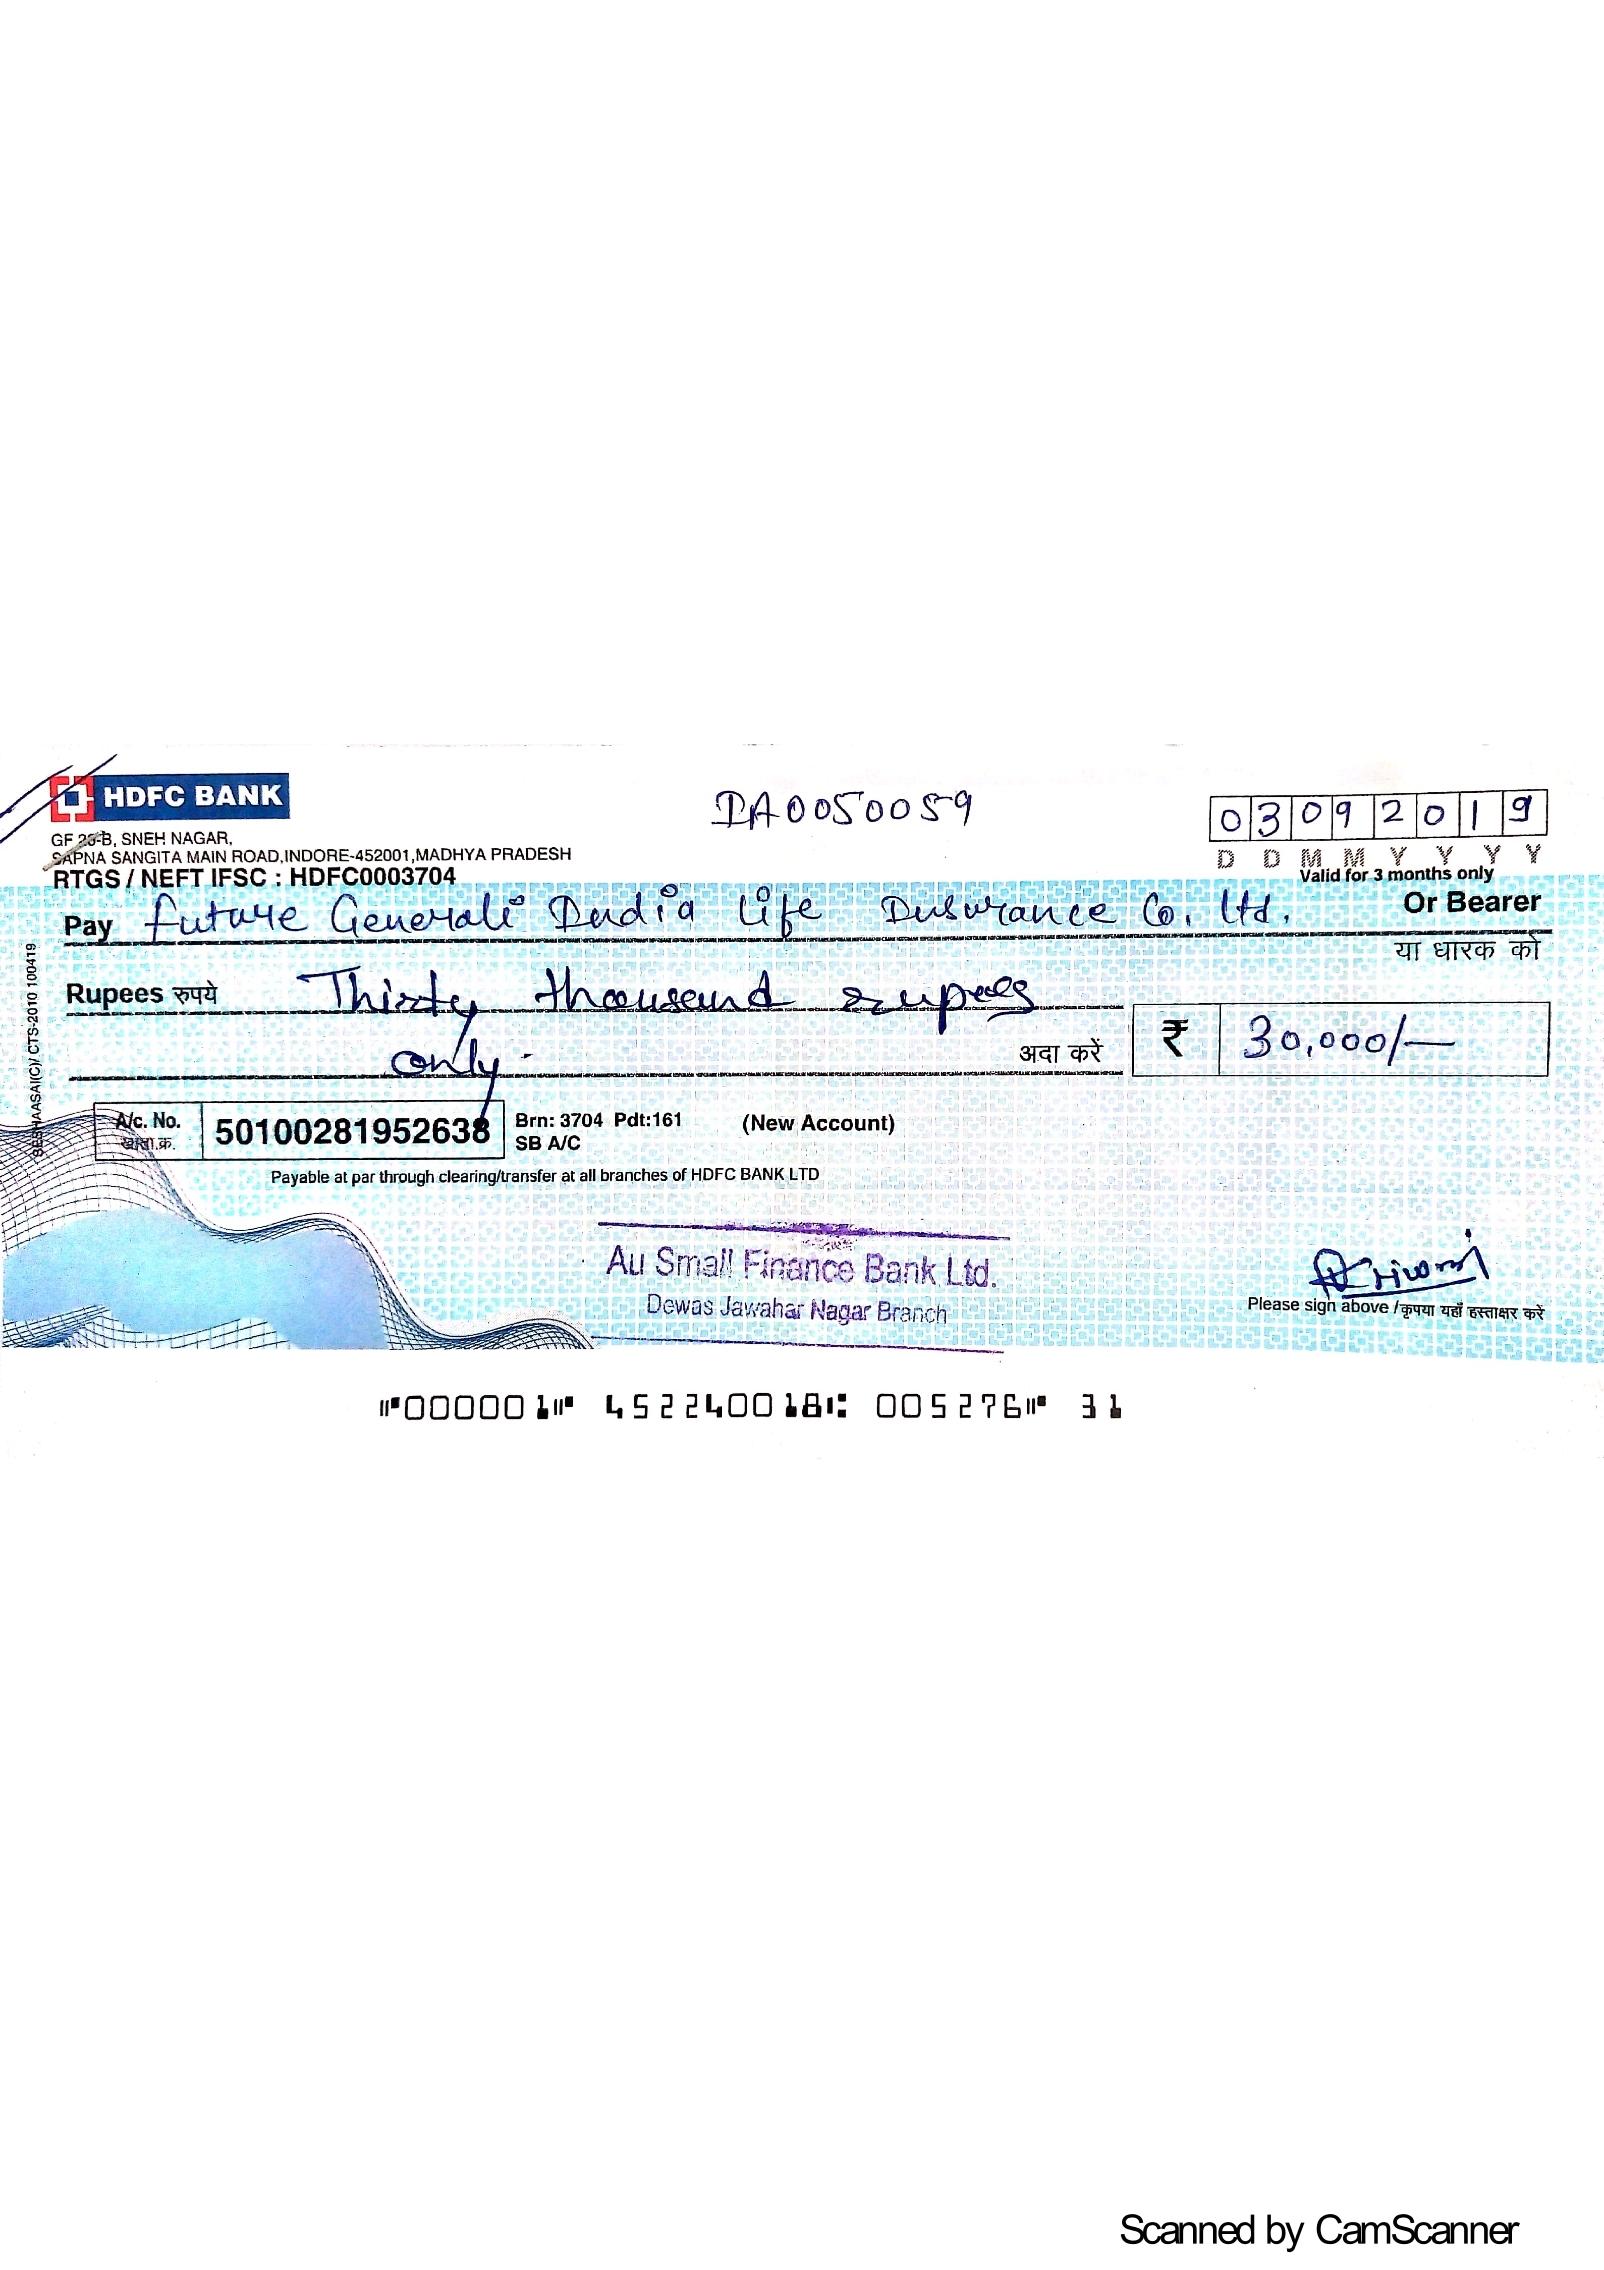 HDFC BANK
IA0050059
03092019
GF 23-B, SNEH NAGAR,
SAPNA SANGITA MAIN ROAD,INDORE-452001,MADHYA PRADESH
D D M M Y Y Y Y
RTGS / NEFT IFSC : HDFC0003704
Valid for 3 months only
Pay Future Generali India Life Insurance Co. Ltd. Or Bearer
या धारक को
Rupees रुपये Thirty thousand rupees
only.
अदा करें ₹ 30,000/-
A/c. No.
खाता.क्र.
50100281952638
Brn: 3704 Pdt:161 (New Account)
SB A/C
Payable at par through clearing/transfer at all branches of HDFC BANK LTD
Au Small Finance Bank Ltd.
Dewas Jawahar Nagar Branch
Please sign above / कृपया यहाँ हस्ताक्षर करें
⑈000001⑈ 452240018⑆ 005276⑈ 31
Scanned by CamScanner